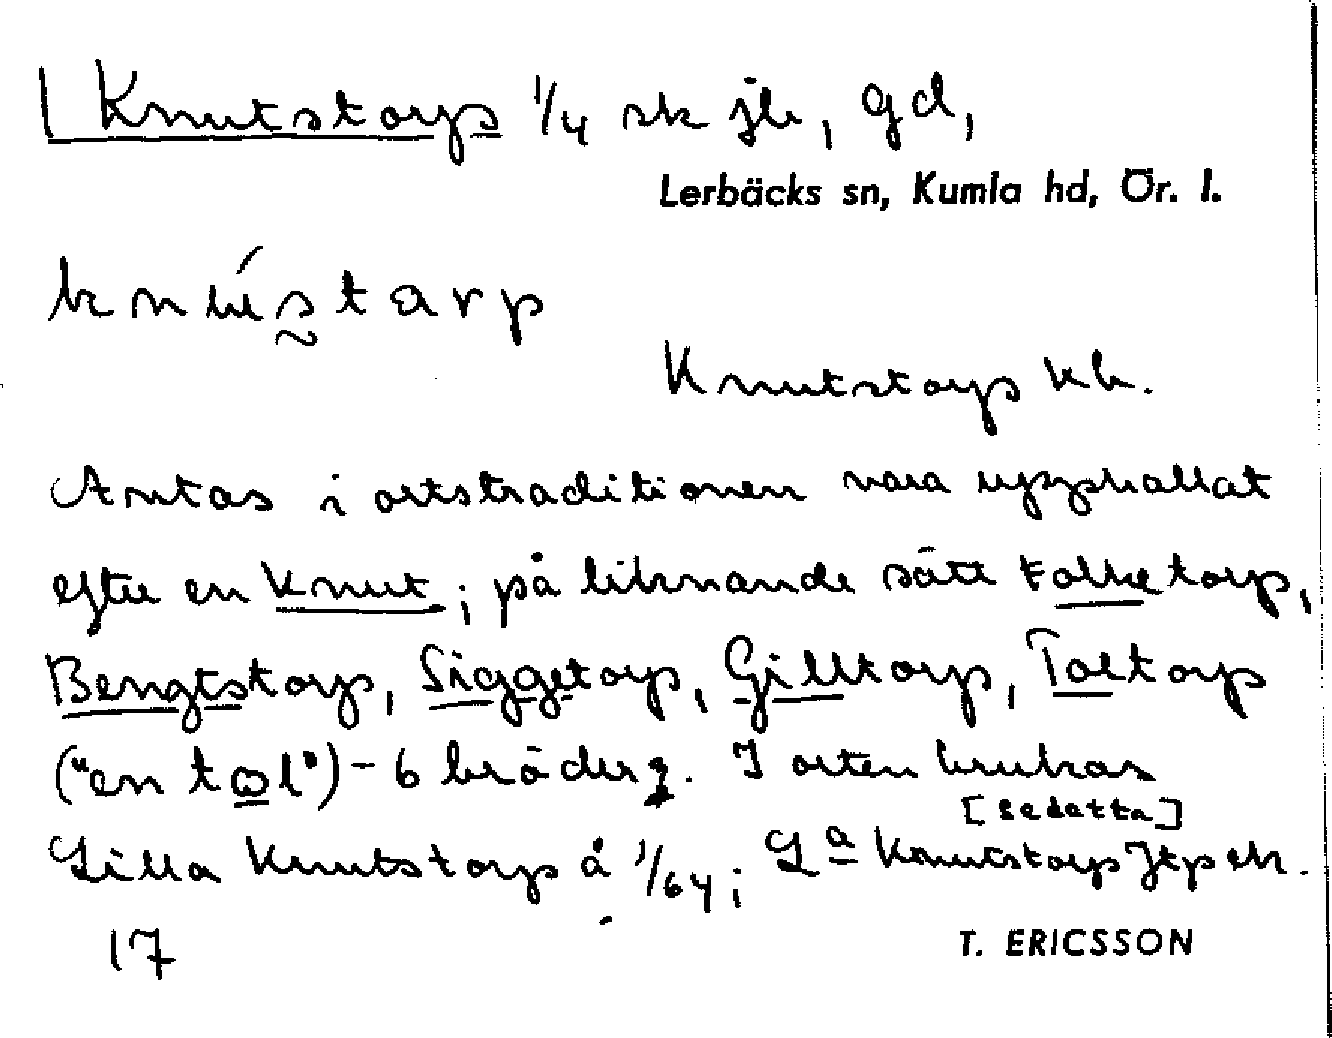 Knutstorp 1/4 sk jb, gd,
Lerbäcks sn, Kumla hd, Ör. l.
knústarp
Knutstorp kb.
Antas i ortstraditionen vara uppkallat
efter en Knut; på liknande sätt Folketorp,
Bengtstorp, Siggetorp, Gilltorp, Toltorp
("en tol") - 6 bröder. I orten brukas
[sedatta]
Lilla Knutstorp å 1/64; La Knutstorp Jtp ek.
17
T. ERICSSON